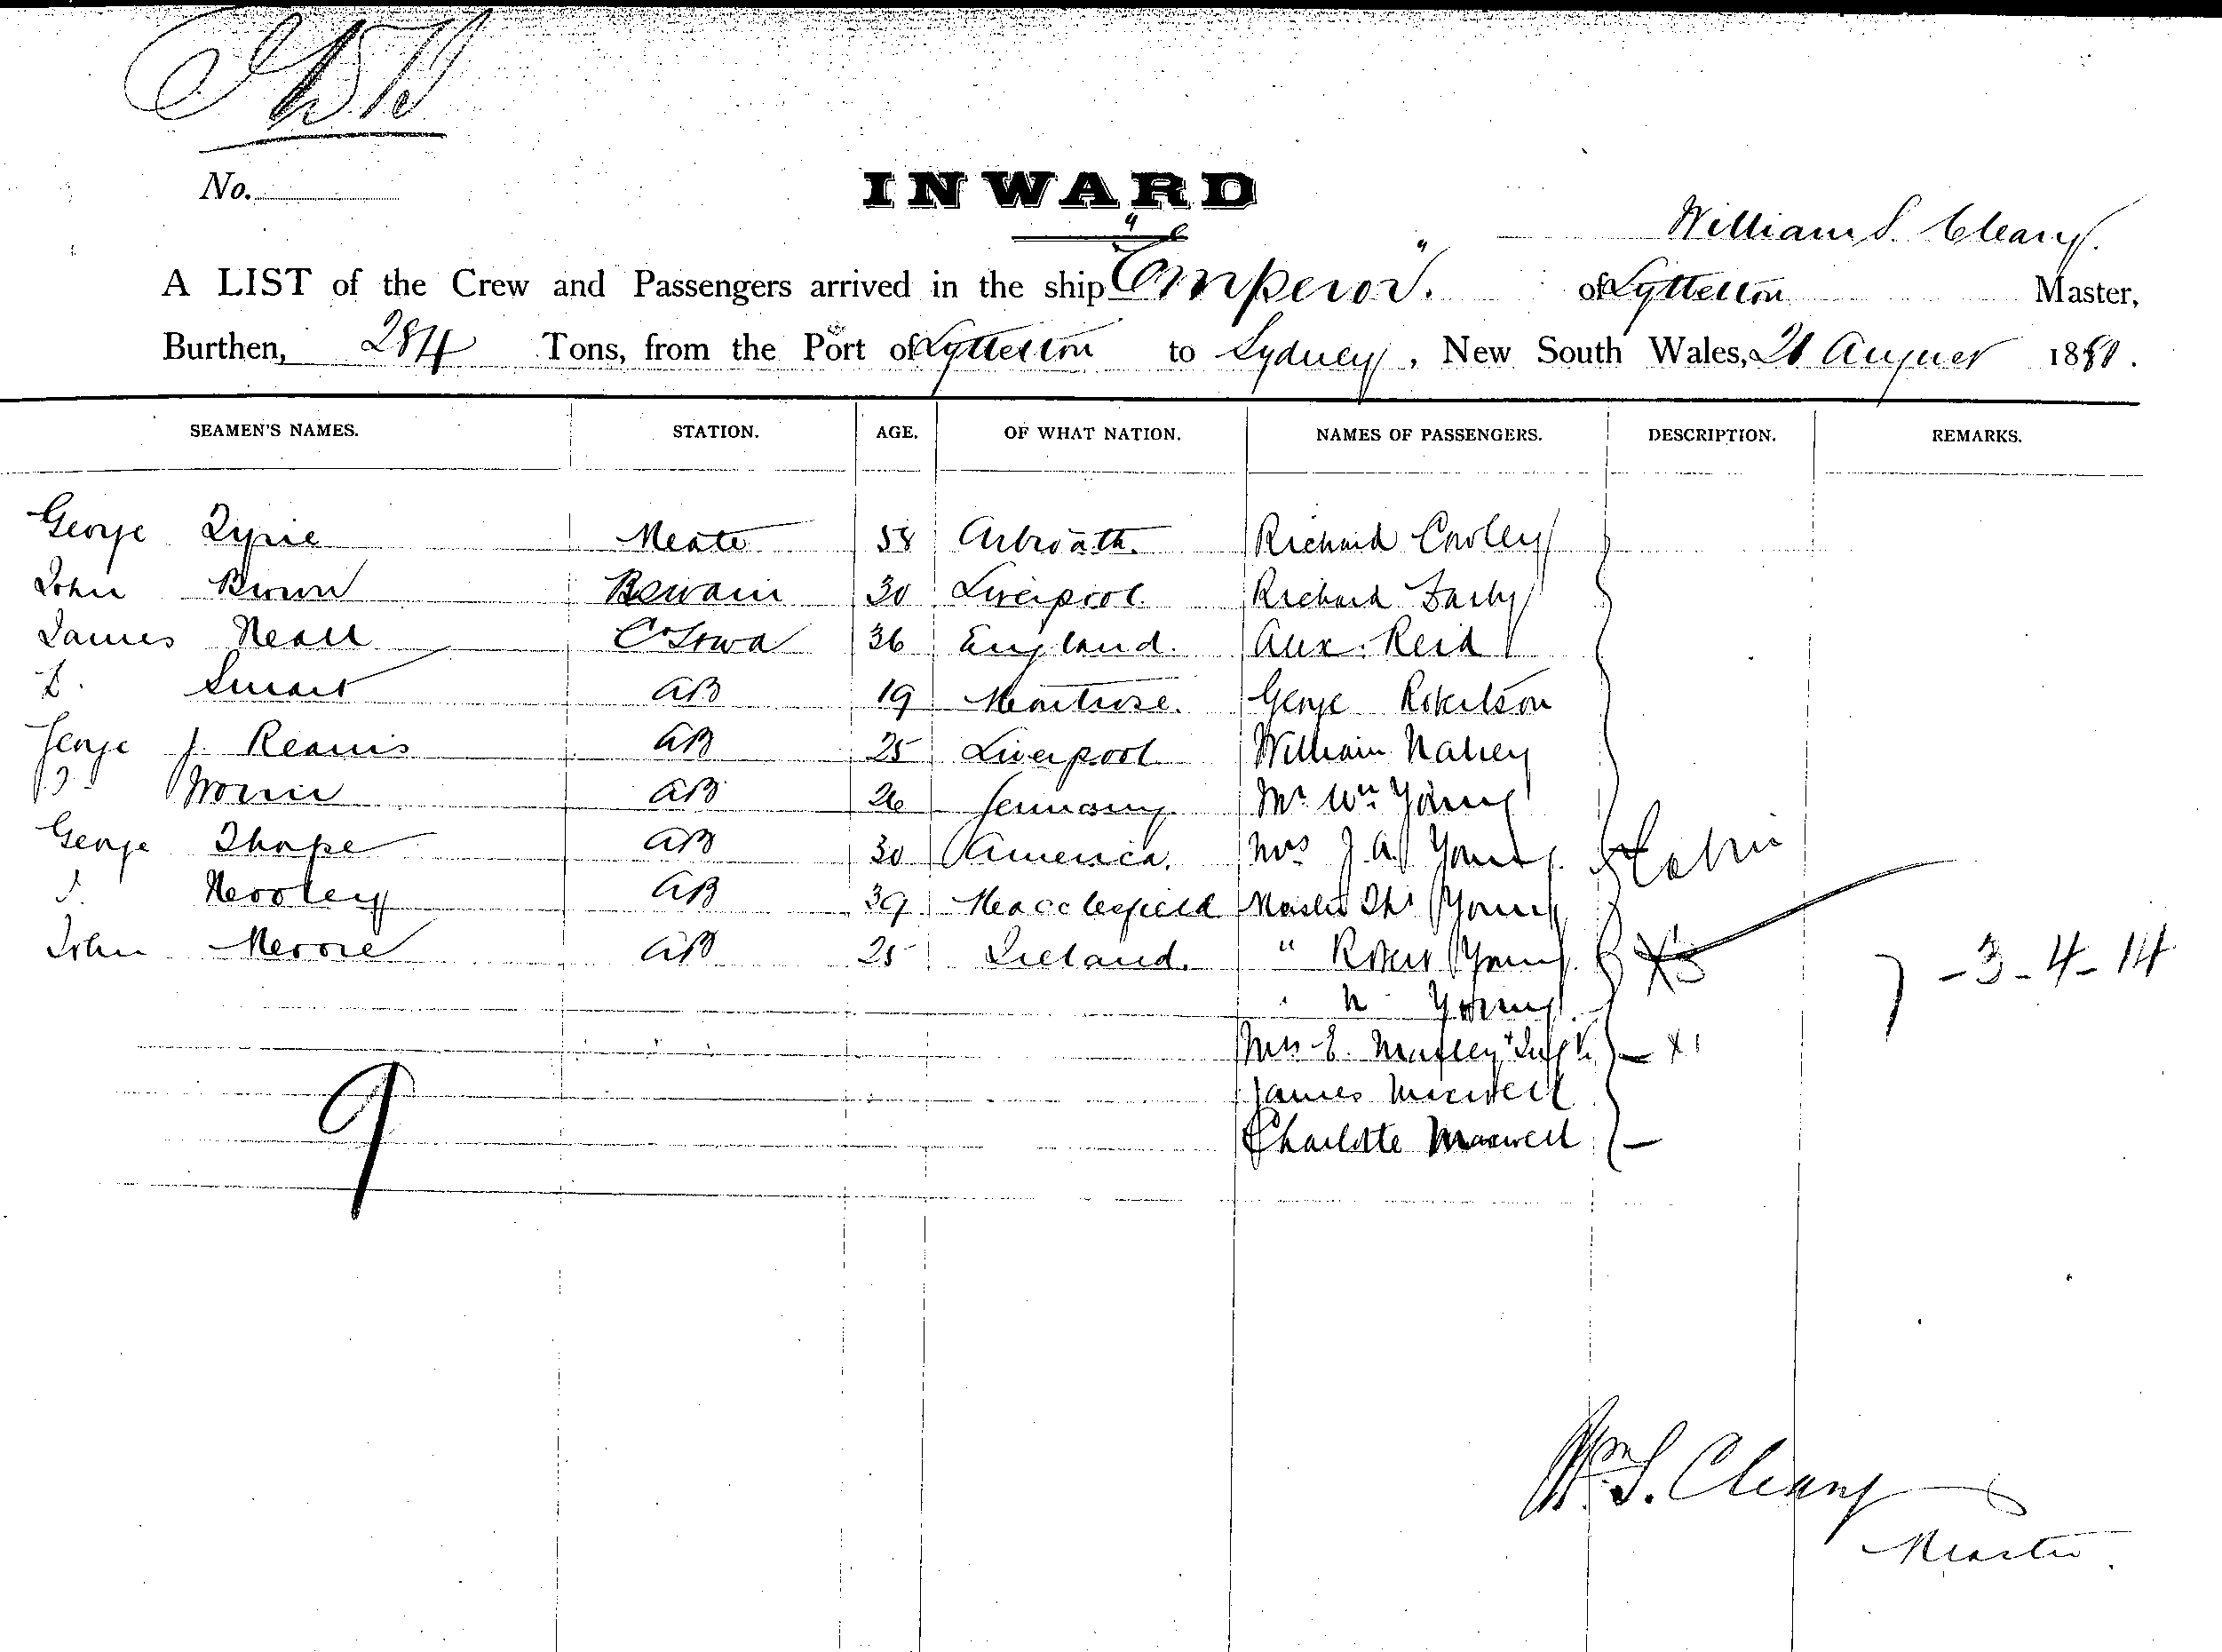 No.
INWARD
William S. Cleary.
A LIST of the Crew and Passengers arrived in the ship "Emperor". of Lyttelton Master,
Burthen, 284 Tons, from the Port of Lyttelton to Sydney, New South Wales, 21 August 1880.
SEAMEN'S NAMES. STATION. AGE. OF WHAT NATION. NAMES OF PASSENGERS. DESCRIPTION. REMARKS.
George Mate 58 Arbroath. Richard Cowley
John Brown Bswain 30 Liverpool. Richard
James Neall Ck Stwd 36 England. Alex. Reid
Smart AB 19 Montrose. George Robertson
George J. AB 25 Liverpool William
AB 26 Germany. Mr Wm Young
George Thorpe AB 30 America. Mrs J. A. Young. Cabin
AB 39 Macclesfield Master Ths Young
John Moore AB 25 Ireland. " Robert Young. X3
7-3-4-14
" Young
Mrs E. X1
James Maxwell
9 Charlotte Maxwell
Wm S. Cleary
Master.